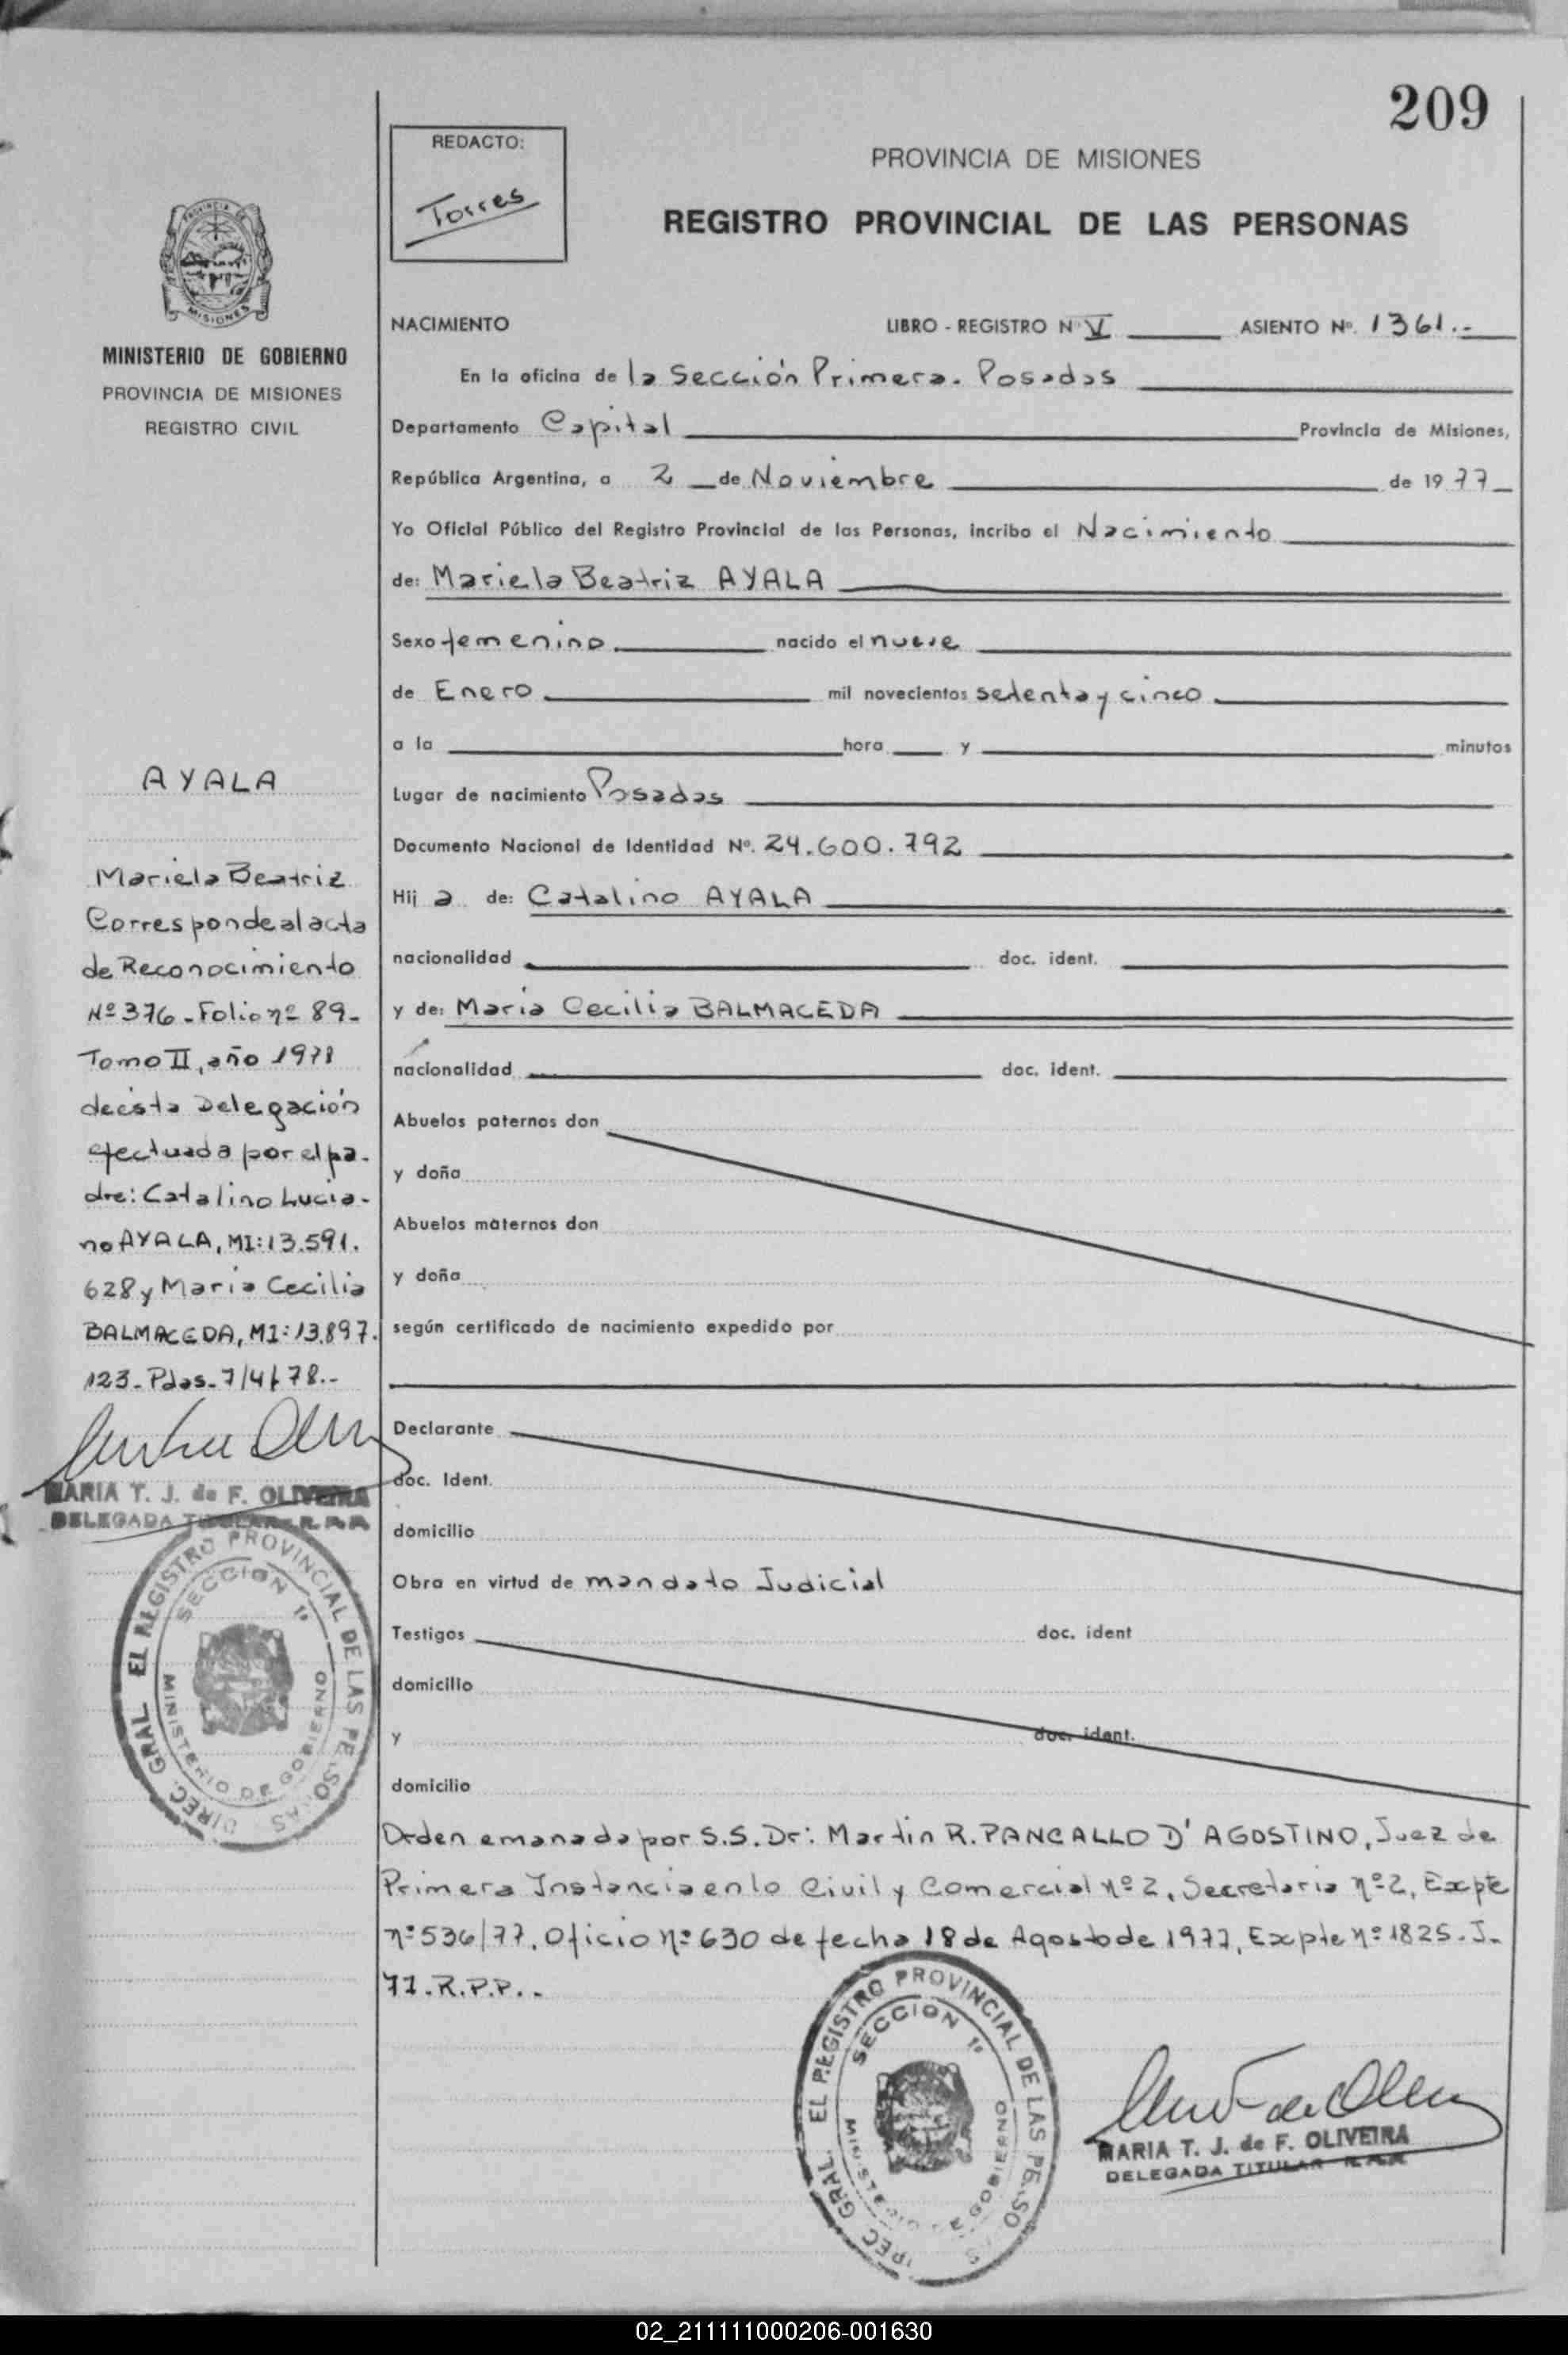 209
REDACTO:
Torres
PROVINCIA DE MISIONES
REGISTRO PROVINCIAL DE LAS PERSONAS
MISIONES
MINISTERIO DE GOBIERNO
PROVINCIA DE MISIONES
REGISTRO CIVIL
NACIMIENTO LIBRO - REGISTRO Nº V ASIENTO Nº. 1361.-
En la oficina de la Sección Primera. Posadas
Departamento Capital Provincia de Misiones,
República Argentina, a 2 de Noviembre de 1977
Yo Oficial Público del Registro Provincial de las Personas, incribo el Nacimiento
de: Mariela Beatriz AYALA
Sexo femenino nacido el nueve
de Enero mil novecientos setenta y cinco
a la hora y minutos
Lugar de nacimiento Posadas
Documento Nacional de Identidad Nº. 24.600.792
Hij a de: Catalino AYALA
nacionalidad doc. ident.
y de: Maria Cecilia BALMACEDA
nacionalidad doc. ident.
Abuelos paternos don
y doña
Abuelos maternos don
y doña
según certificado de nacimiento expedido por
Declarante
doc. Ident.
domicilio
Obra en virtud de mandato Judicial
Testigos doc. ident
domicilio
y doc. ident.
domicilio
Orden emanada por S.S. Dr: Martin R. PANCALLO D' AGOSTINO, Juez de
Primera Instancia en lo Civil y Comercial nº 2, Secretaria nº 2, Expte
nº 536/77, Oficio nº 630 de fecha 18 de Agosto de 1977, Expte nº 1825. J.
77. R.P.P..-
AYALA
Mariela Beatriz
Corresponde al acta
de Reconocimiento
Nº 376 - Folio nº 89 -
Tomo II, año 1978
de esta Delegación
efectuada por el pa-
dre: Catalino Lucia-
no AYALA, MI: 13.591.
628 y Maria Cecilia
BALMACEDA, MI: 13.897.
123 - Pdas - 7/4/78.-
MARIA T. J. de F. OLIVEIRA
DELEGADA TITULAR R.P.P.
DIREC. GRAL. EL REGISTRO PROVINCIAL DE LAS PERSONAS
SECCION 1ª
MINISTERIO DE GOBIERNO
DIREC. GRAL. EL REGISTRO PROVINCIAL DE LAS PERSONAS
SECCION 1ª
MINISTERIO DE GOBIERNO
MARIA T. J. de F. OLIVEIRA
DELEGADA TITULAR R.P.P.
02_211111000206-001630